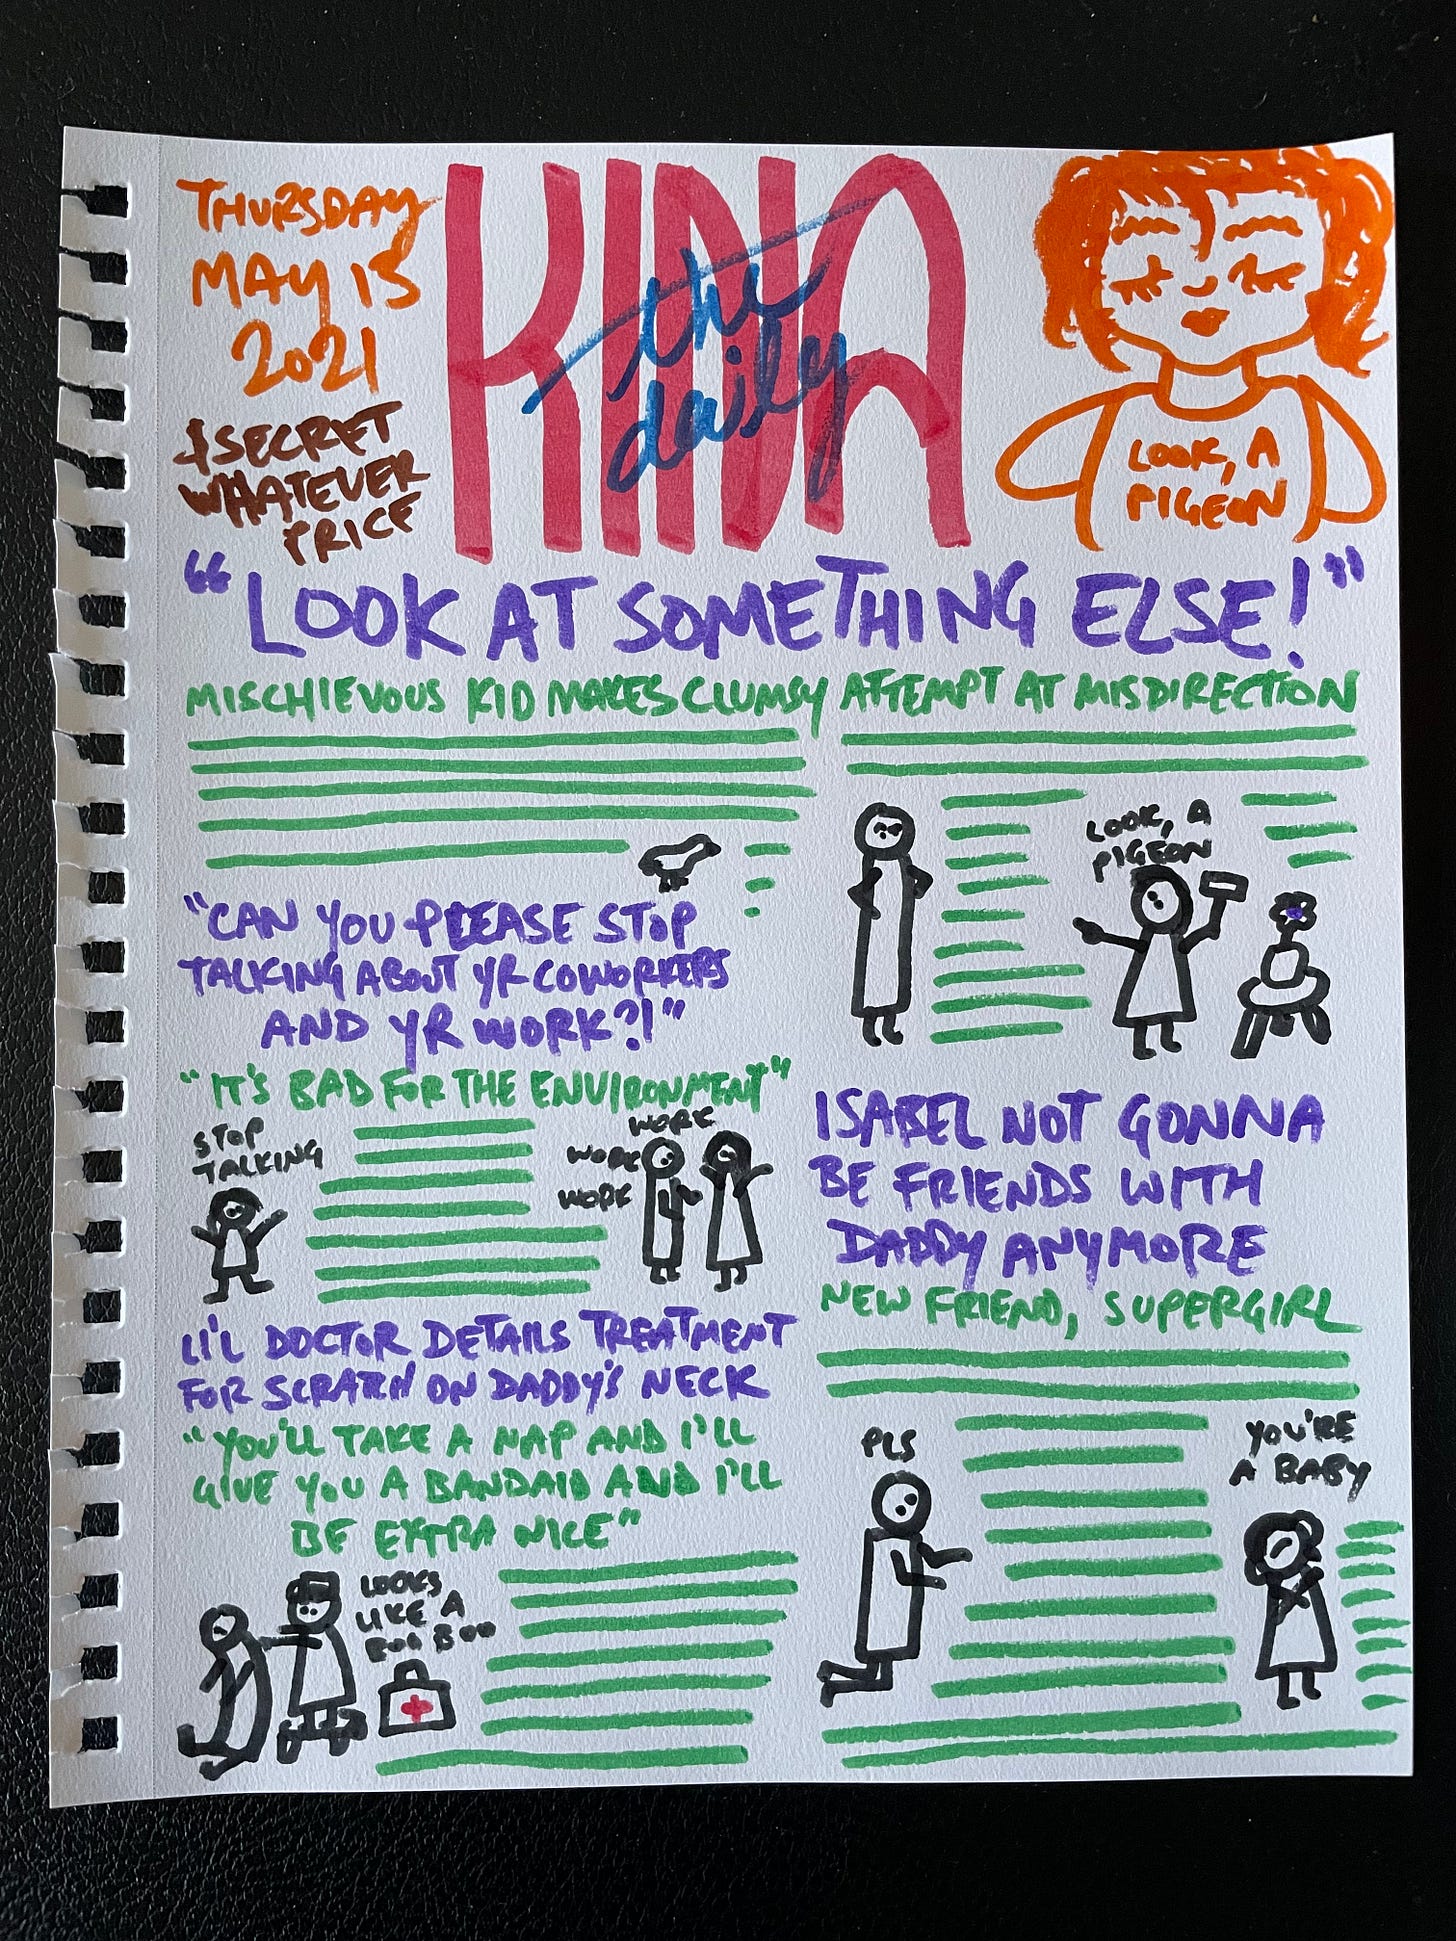 THURSDAY
MAY 13
2021
$SECRET
WHATEVER
PRICE
KINDA
the
daily
LOOK, A
PIGEON
"LOOK AT SOMETHING ELSE!"
MISCHIEVOUS KID MAKES CLUMSY ATTEMPT AT MISDIRECTION
LOOK, A
PIGEON
"CAN YOU PLEASE STOP
TALKING ABOUT YR COWORKERS
AND YR WORK?!"
"IT'S BAD FOR THE ENVIRONMENT"
STOP
TALKING
WORK
WORK
WORK
LI'L DOCTOR DETAILS TREATMENT
FOR SCRATCH ON DADDY'S NECK
"YOU'LL TAKE A NAP AND I'LL
GIVE YOU A BANDAID AND I'LL
BE EXTRA NICE"
LOOKS
LIKE A
BOO BOO
ISABEL NOT GONNA
BE FRIENDS WITH
DADDY ANYMORE
NEW FRIEND, SUPERGIRL
PLS
YOU'RE
A BABY